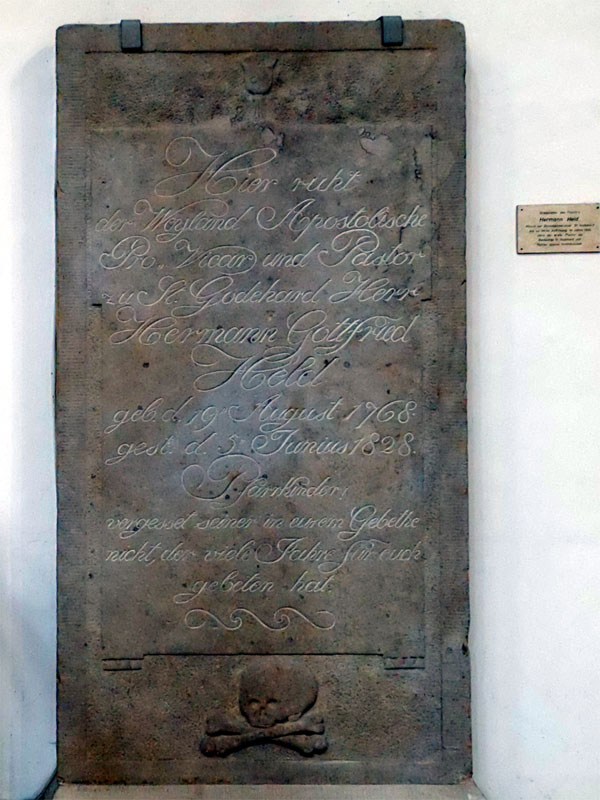 Hier ruht
der Weyland Apostolische
Pro, Vicar und Pastor
zu St. Godehard Herr
Hermann Gottfried
Held
geb. d. 19 August 1768.
gest. d. 5. Junius 1828.
Pfarrkinder,
vergesset seiner in eurem Gebethe
nicht, der viele Jahre für euch
gebeten hat.
Hermann Held